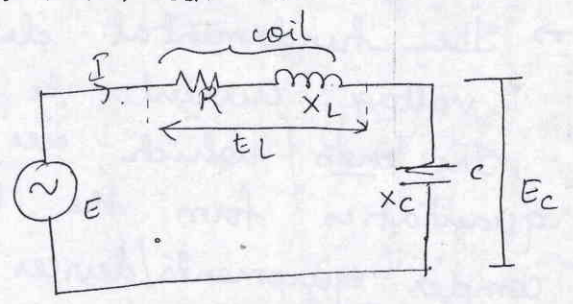 coil
I
R
X_L
E_L
E
X_C
C
E_C